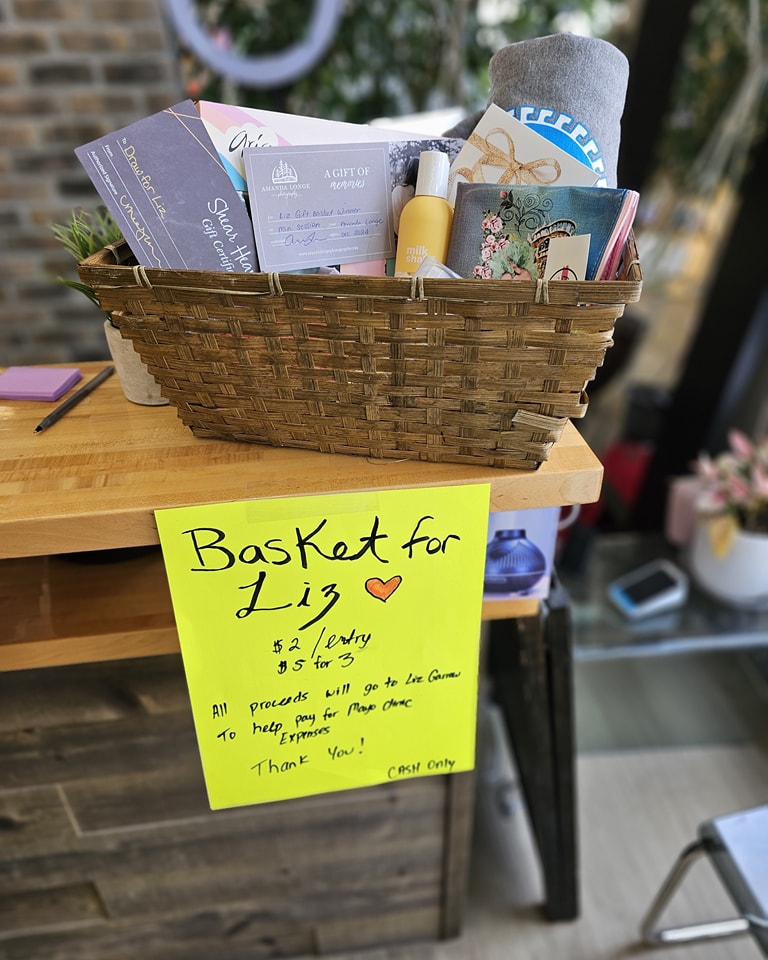 To Draw for Liz
From
Authorized Signature
Shear
Gift Certif
AMANDA LONGE
photography
A GIFT OF
memories
to Liz Gift Basket Winner
mini session Amanda Longe
milk
sha
Basket for
Liz
$2 /entry
$5 for 3
All proceeds will go to Liz Garrow
To help pay for Mayo clinic
Expenses
Thank You!
CASH Only